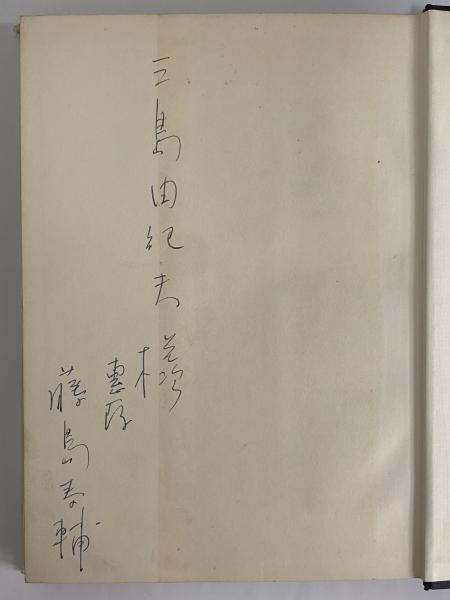 三島由紀夫様
恵存
藤島泰輔